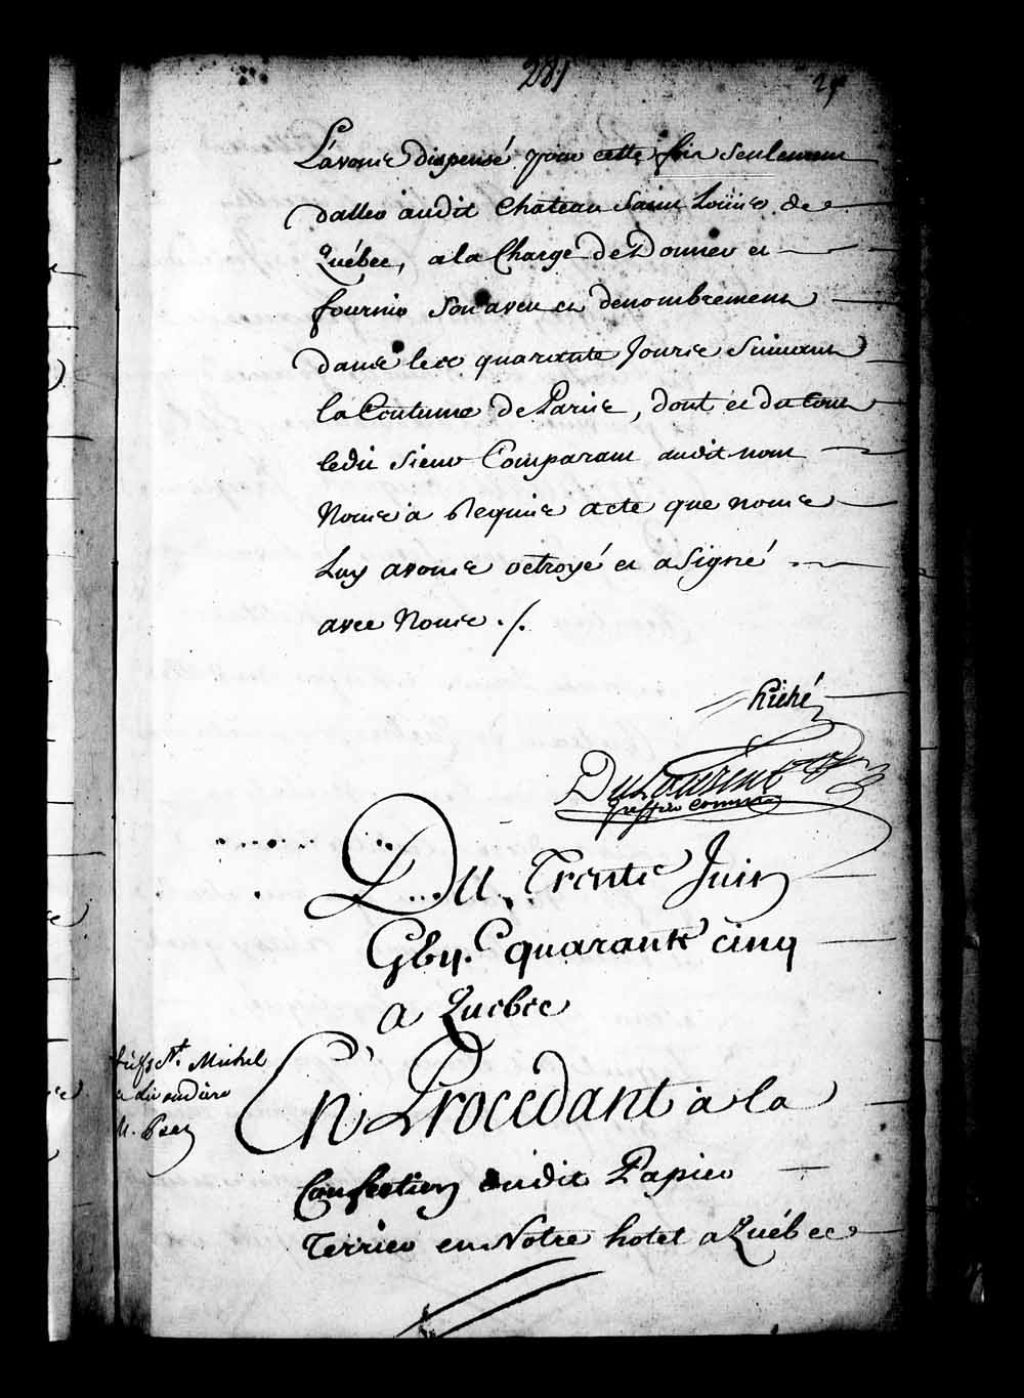 281
L'avons dispensé pour cette fois seulement
daller audit Chateau Saint Loüis de
Québec, a la Charge de Donner et
fournir Son aveu et denombrement
dans les quarante Jours Suivant
la Coutume de Paris, dont et du tout
ledit Sieur Comparant audit nom
Nous a Requis acte que nous
Luy avons octroyé et a Signé
avec Nous ./.
hiché
DuLaurent
greffier commis
Du Trente Juin
Gbij.C quarante cinq
a Quebec
fiefs St. Michel
a Livaudiere
M. Pean
En Procédant a la
Confection dudit Papier
Terrier en Notre hotel a Québec